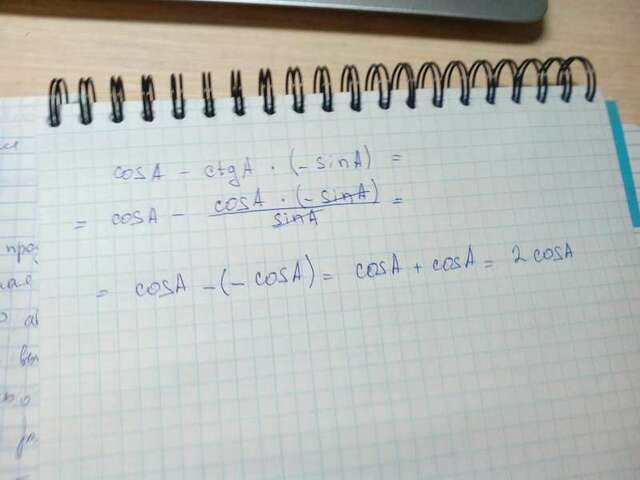 cosA - ctgA · (-sinA) =
= cosA - cosA · (-sinA) / sinA =
= cosA - (-cosA) = cosA + cosA = 2cosA